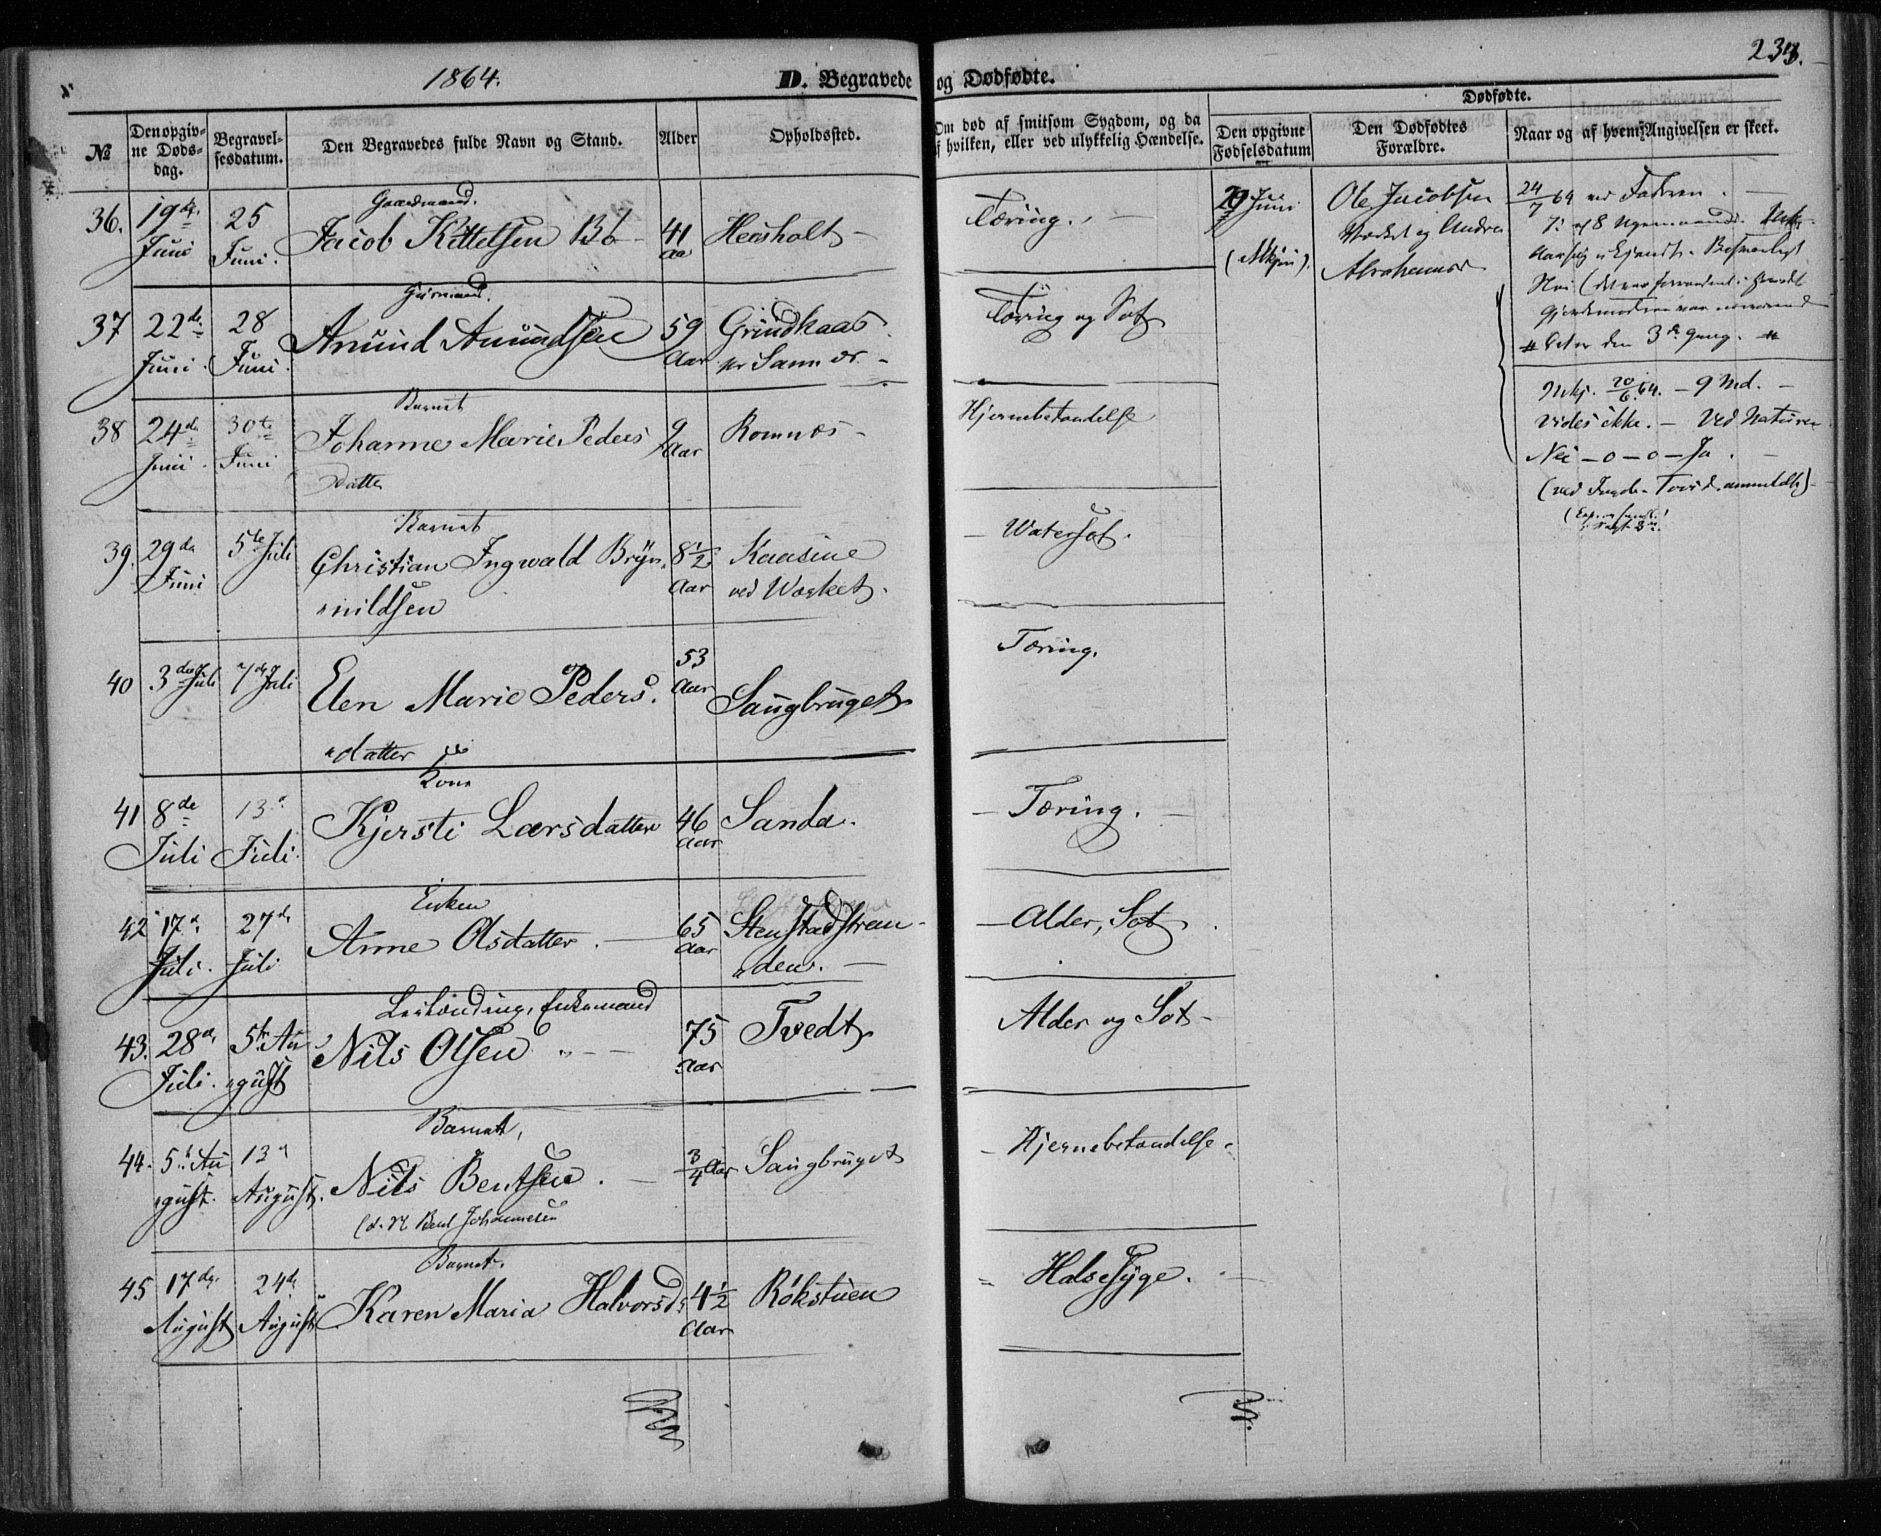 1864.
D. Begravede og Dødfødte.
238.
Dødfødte.
№
Den opgiv-
ne Døds-
dag.
Begravel-
sesdatum.
Den Begravedes fulde Navn og Stand.
Alder
Opholdssted.
Om død af smitsom Sygdom, og da
af hvilken, eller ved ulykkelig Hændelse.
Den opgivne
Fødselsdatum
Den Dødfødtes
Forældre.
Naar og af hvem Angivelsen er skeet.
36. 19de Juni
25 Juni.
Gaardmand.
Jacob Kittelsen Bö
41 Aar
Heisholt
Tæring.
37 22de Juni.
28 Juni.
Huusmand.
Amund Amundsen
59 Aar
Grindkaas
pr Sannæs.
Tæring og Sot
38 24de Juni.
30te Juni
Barnet
Johanne Marie Peders
datter
9 Aar
Romnæs
Hjernebetændelse
39. 29de Juni
5te Juli
Barnet
Christian Ingwald Bryn-
nildsen
8½ Aar
Kaasine
ved Værket.
Watersot.
40 3die Juli
7de Juli
Elen Marie Peders.
datter
53 Aar
Saugbruget
Tæring.
41 8de Juli
13de Juli.
Kone
Kjersti Larsdatter
46 Aar
Sanda.
Tæring.
42 17de Juli.
27de Juli
Enken
Anne Olsdatter.
65 Aar
Stenstadstran-
den.
Alder, Sot
43. 28de Juli.
5te Au-
gust
Enkemand
Nils Olsen
75 Aar
Tvedt
Alder og Sot
44. 5te Au-
gust.
13de August.
Barnet,
Nils Bentsen.
Bent Johannesen
¾ Aar
Saugbruget
Hjernebetændelse.
45 17de August
24de August
Barnet.
Karen Maria Halvorsd.
4½ Aar
Rökstuen
Halsesyge.
29 Juni
Ole Jacobsen
Værket og Andrea
Abrahamsd
24/7 64 ved Faderen.
Nei
den 3de Gang.
20/6 64. – 9 Md.
vides ikke. – Ved Naturen
Nei – o – o – Ja.